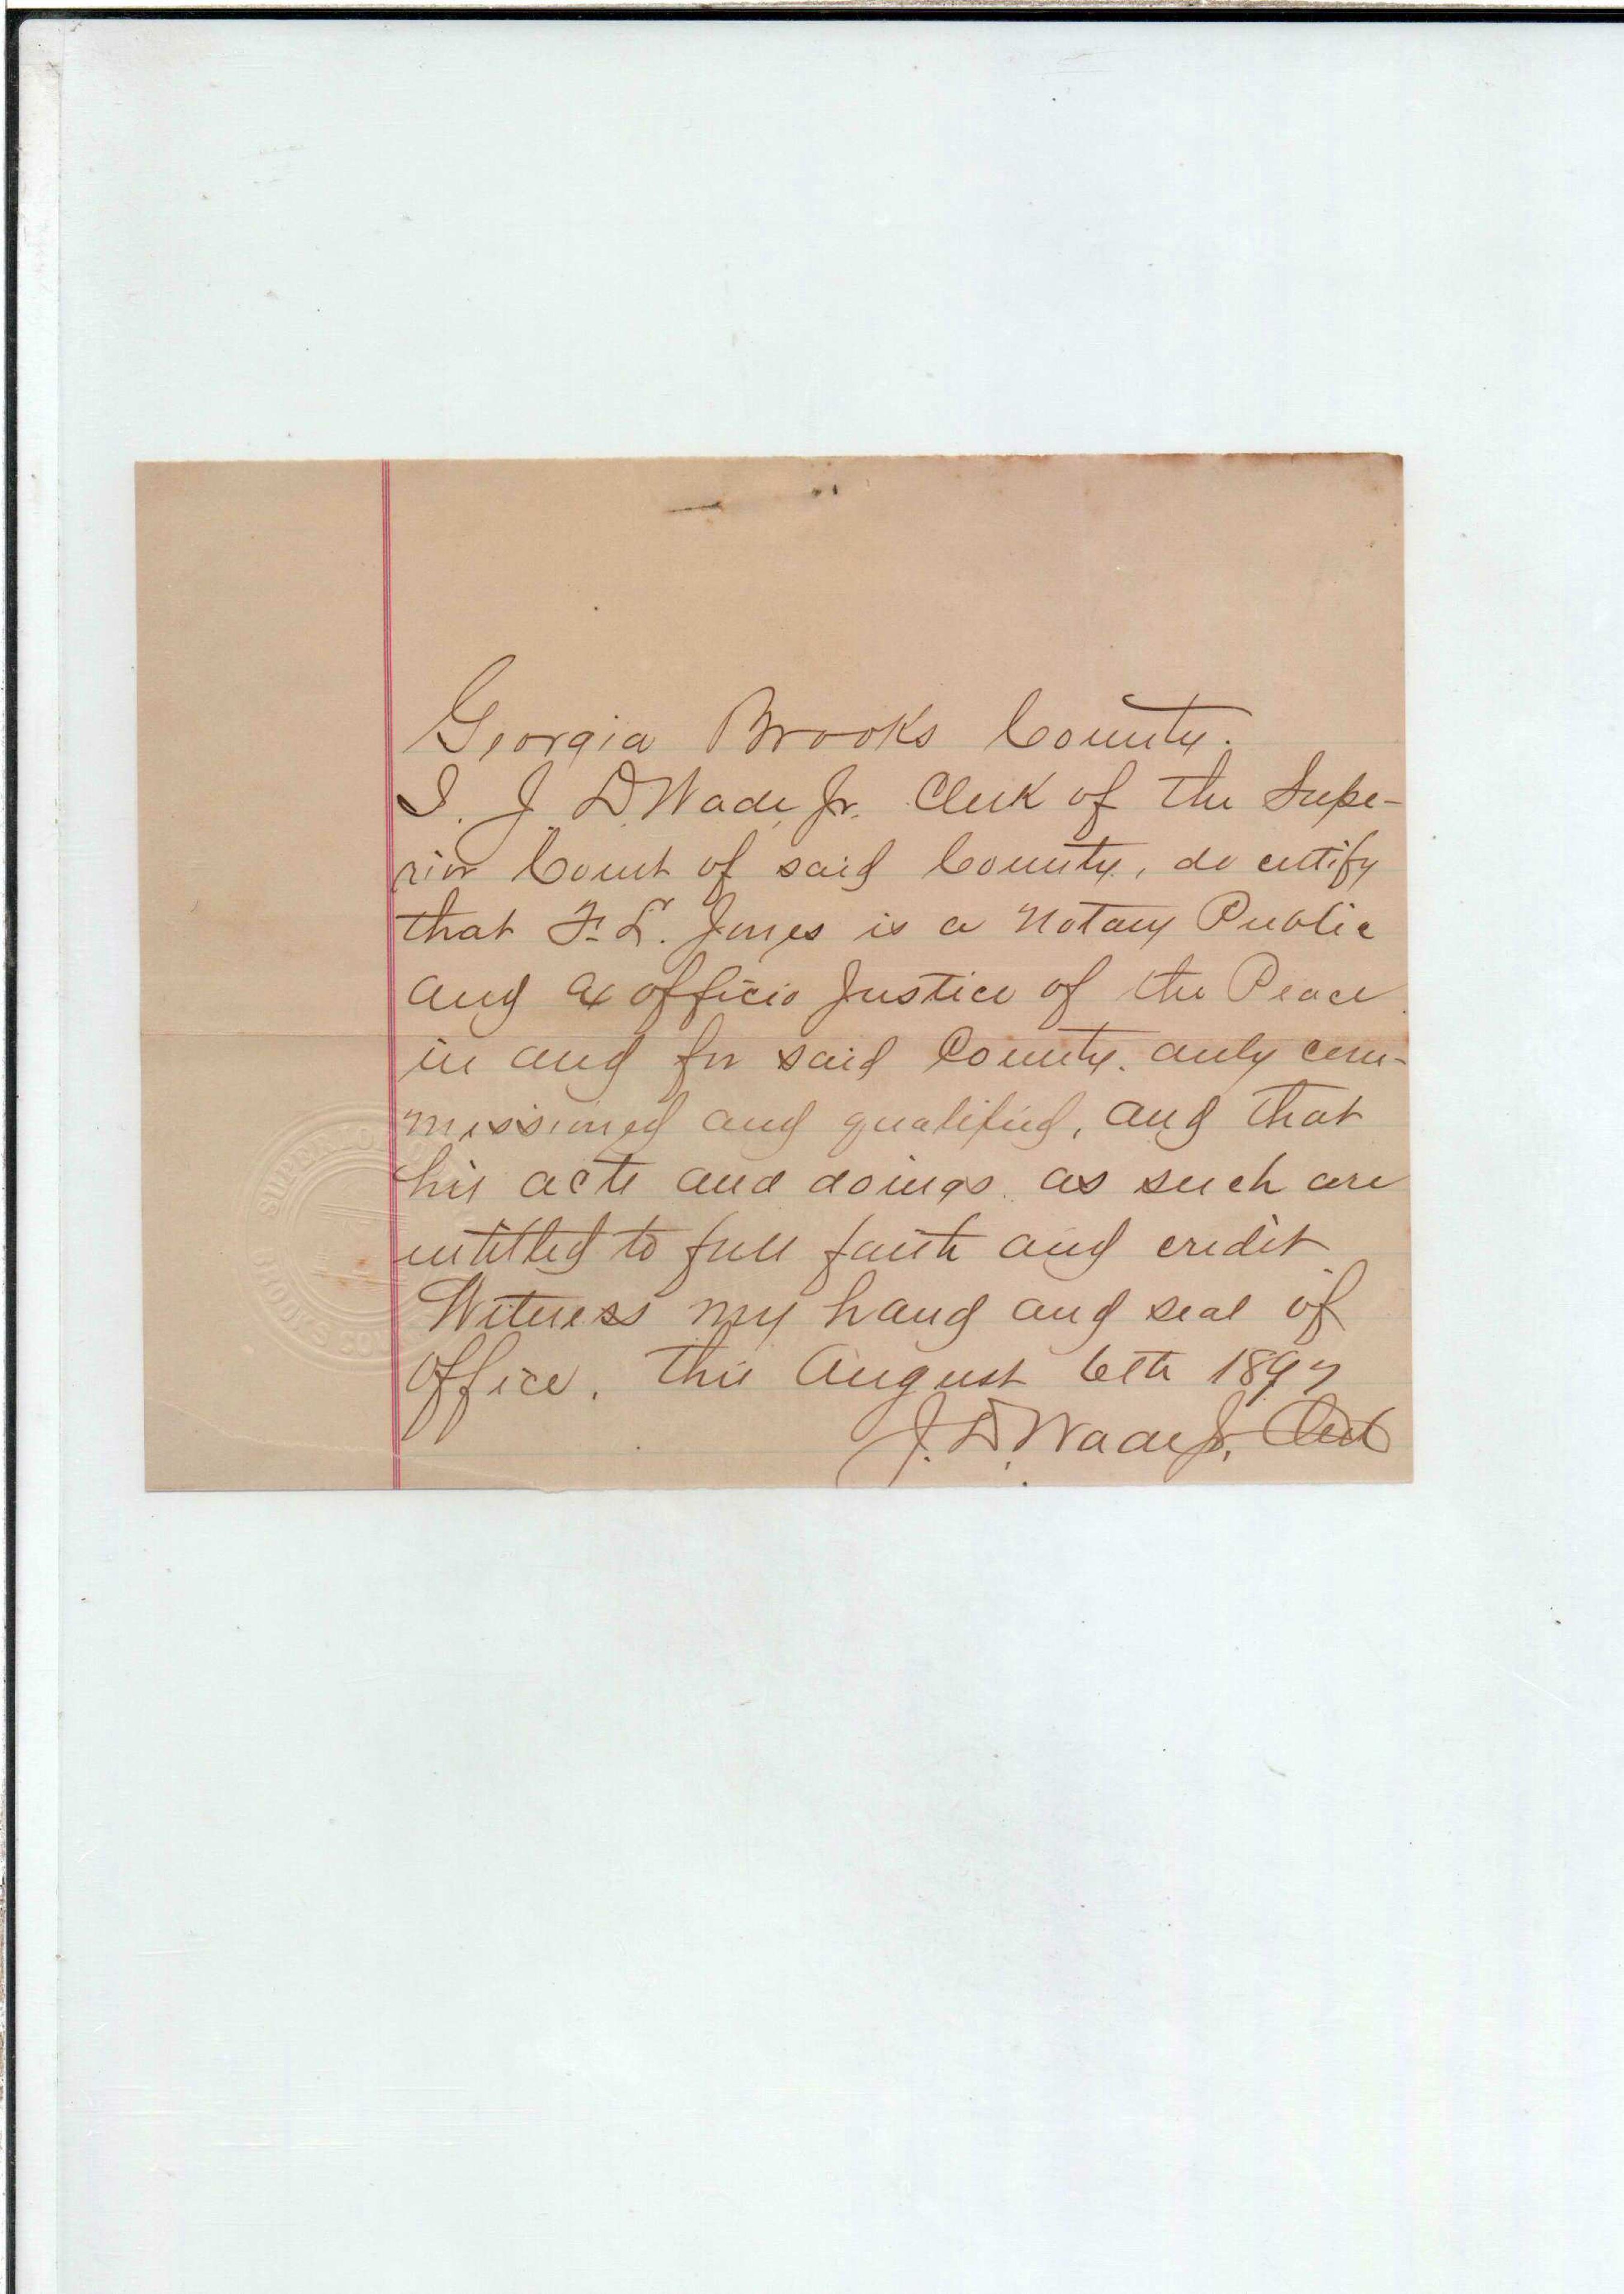 Georgia Brooks County.
I. J. D. Wade, Jr. Clerk of the Supe-
rior Court of said County, do certify
that F. L. Jones is a Notary Public
and Ex officio Justice of the Peace
in and for said County. duly com-
missioned and qualified, and that
his acts and doings as such are
entitled to full faith and credit
Witness my hand and seal of
office. This August 6th 1897
J. D. Wade Jr, Clerk
SUPERIOR
BROOKS CO